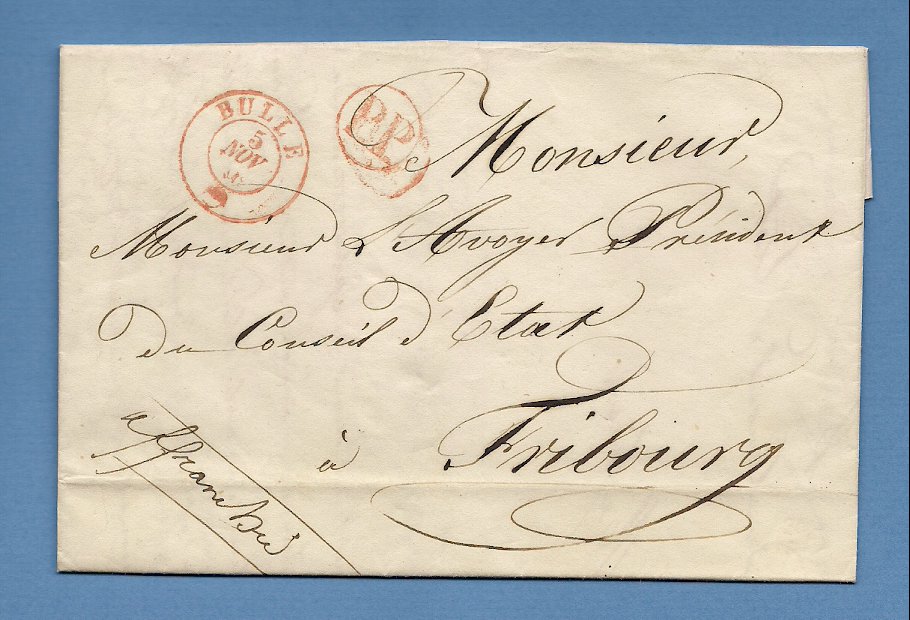 BULLE
5
NOV
PP
Monsieur,
Monsieur L'Avoyer Président
du Conseil d'Etat
à Fribourg
affranchie